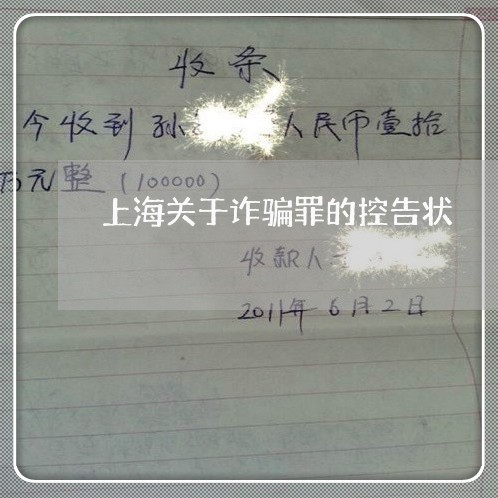 收条
今收到孙 人民币壹拾
万元整(100000)
上海关于诈骗罪的控告状
收款人
2011年6月2日